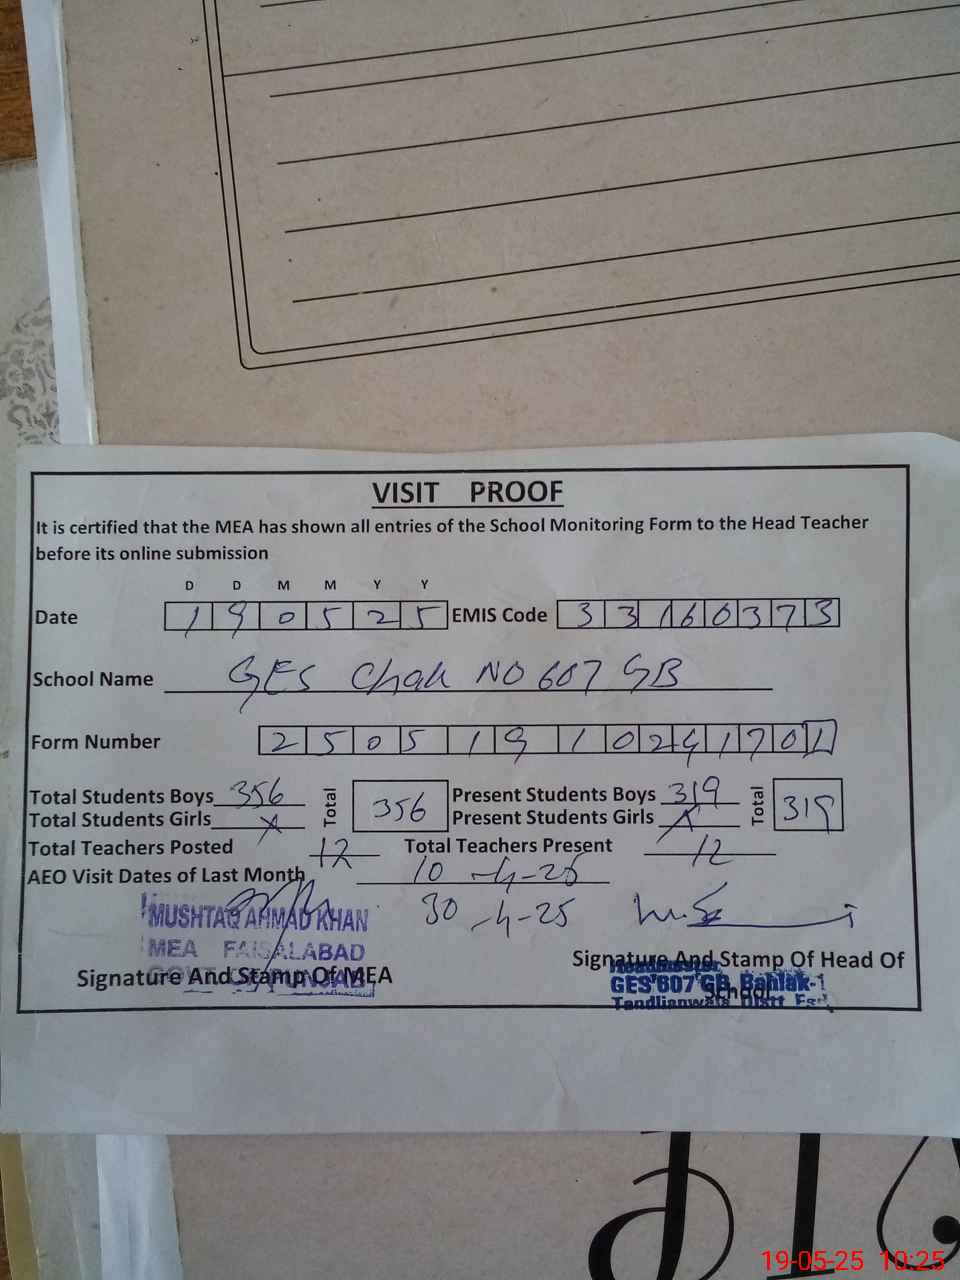 VISIT PROOF
It is certified that the MEA has shown all entries of the School Monitoring Form to the Head Teacher
before its online submission
D D M M Y Y
Date 1 9 0 5 2 5 EMIS Code 3 3 1 6 0 3 7 3
School Name GES Chak NO 607 GB
Form Number 2 5 0 5 1 9 1 0 2 9 1 7 0 1
Total Students Boys 356 Total 356 Present Students Boys 319 Total 319
Total Students Girls X Present Students Girls X
Total Teachers Posted 12 Total Teachers Present 12
AEO Visit Dates of Last Month 10-4-25
30-4-25
MUSHTAQ AHMAD KHAN
MEA FAISALABAD
Signature And Stamp Of MEA
Signature And Stamp Of Head Of
School
Headmaster
GES 607 GB, Bahlak-1
Tandlianwala Distt
19-05-25 10:25